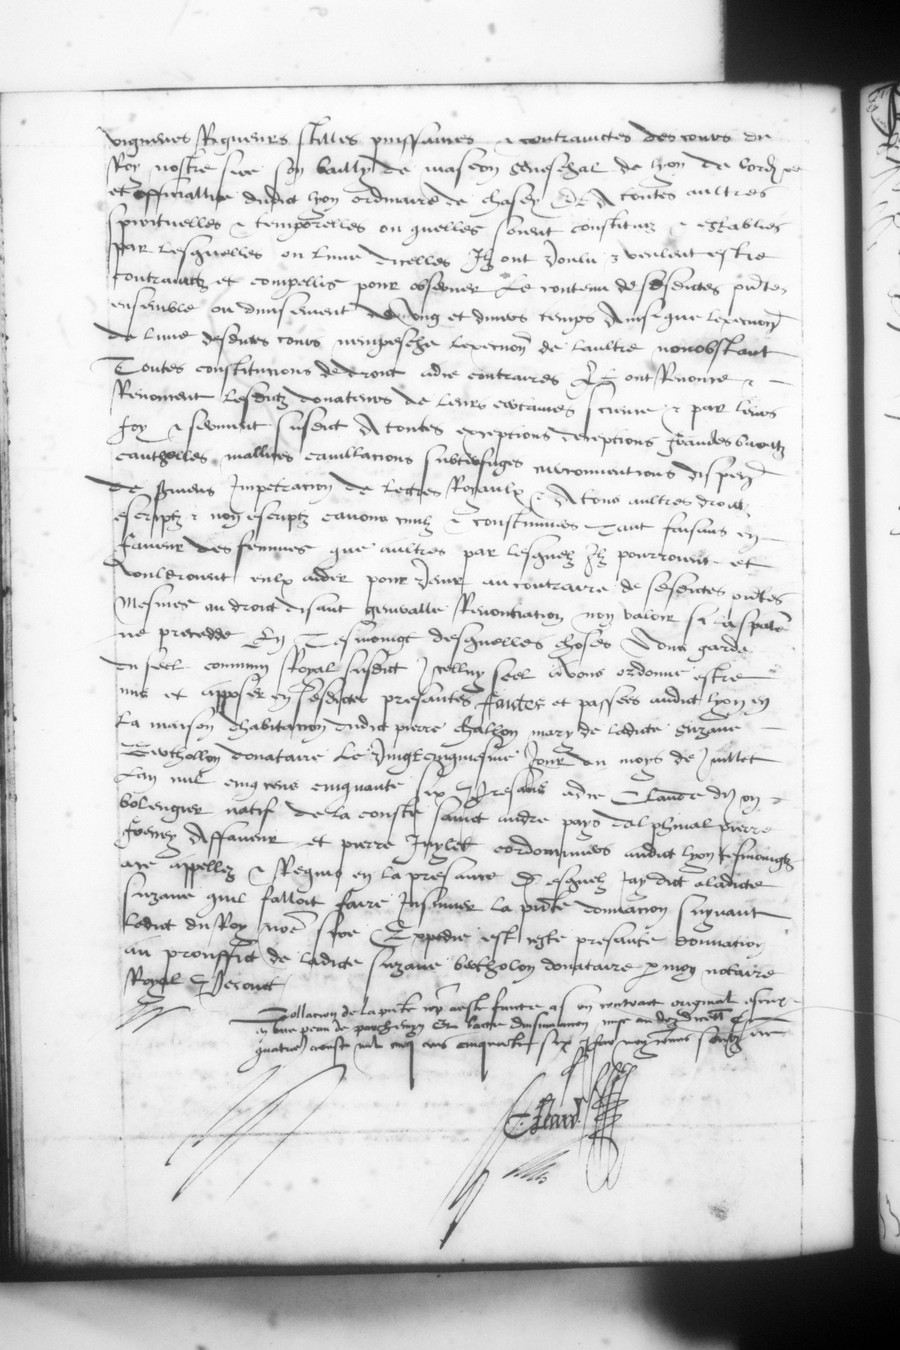 vigueurs Rigueurs stilles puissances et contrainctes des cours du
Roy nostre sire son bailly de mascon seneschal de lyon
et officiallite dudict lyon ordinaire de chasey Et A toutes aultres
spirituelles et temporelles ou quelles soient constituez et establies
par lesquelles ou lune dicelles Ilz ont voulu et veulent estre
contrainctz et compellis pour observer le contenu de sesdictes pntes
ensemble ou divisement Ung et divers temps Ainsi que lexecucion
de lune desdictes cours nempesche lexecucion de laultre nonobstant
Toutes constitucions de droict a ce contraires Et ont Renonce et
Renoncent lesdictz donateurs de leurs certaines science et par leurs
foy et serment susdict A toutes exceptions deceptions fraudes
cauthelles mallices cavillacions subterfuges circonventions
de Impetracion de lectres Royaulx Et A tous aultres droictz
escriptz et non escriptz canons civilz et constitumes Tant faisans en
faveur des femmes que aultres par lesquelz Ilz pourroient et
vouldroient eulx aider pour venir au contraire de sesdictes pntes
Mesmes au droict disant generalle Renonciation non valoir si la spale
ne precedde En Tesmoings desquelles choses Nous garde
du seel commun Royal susdict Icelluy seel avons ordonne estre
mis et appose en sesdictes presantes faictes et passees audict lyon en
la maison dhabitacion dudict pierre chathon mary de ladicte suzane
Berthollon donataire Le vingt cinquiesme Jour du moys de Juillet
Lan mil cinq cens cinquante six Presans a ce Claude
bolengier natif de la coste sainct andre pays dalphinal pierre
Affaneur et pierre cordonniers audict lyon tesmoingtz
a ce appellez et Requis en la presance desquelz Jay dict a ladicte
suzane quil falloit faire Insinuer la pnte donnacion suyvant
ledict du Roy nre sire Expedie est ceste presante donnation
au prouffict de ladicte suzane bertholon donataire p moy notaire
Royal
Collacion de la pnte copie a este faicte a son contract original escript
en une peau de parchemyn Et lacte dinsinuacion mise au doz dicelle
mil cinq cens cinquante six